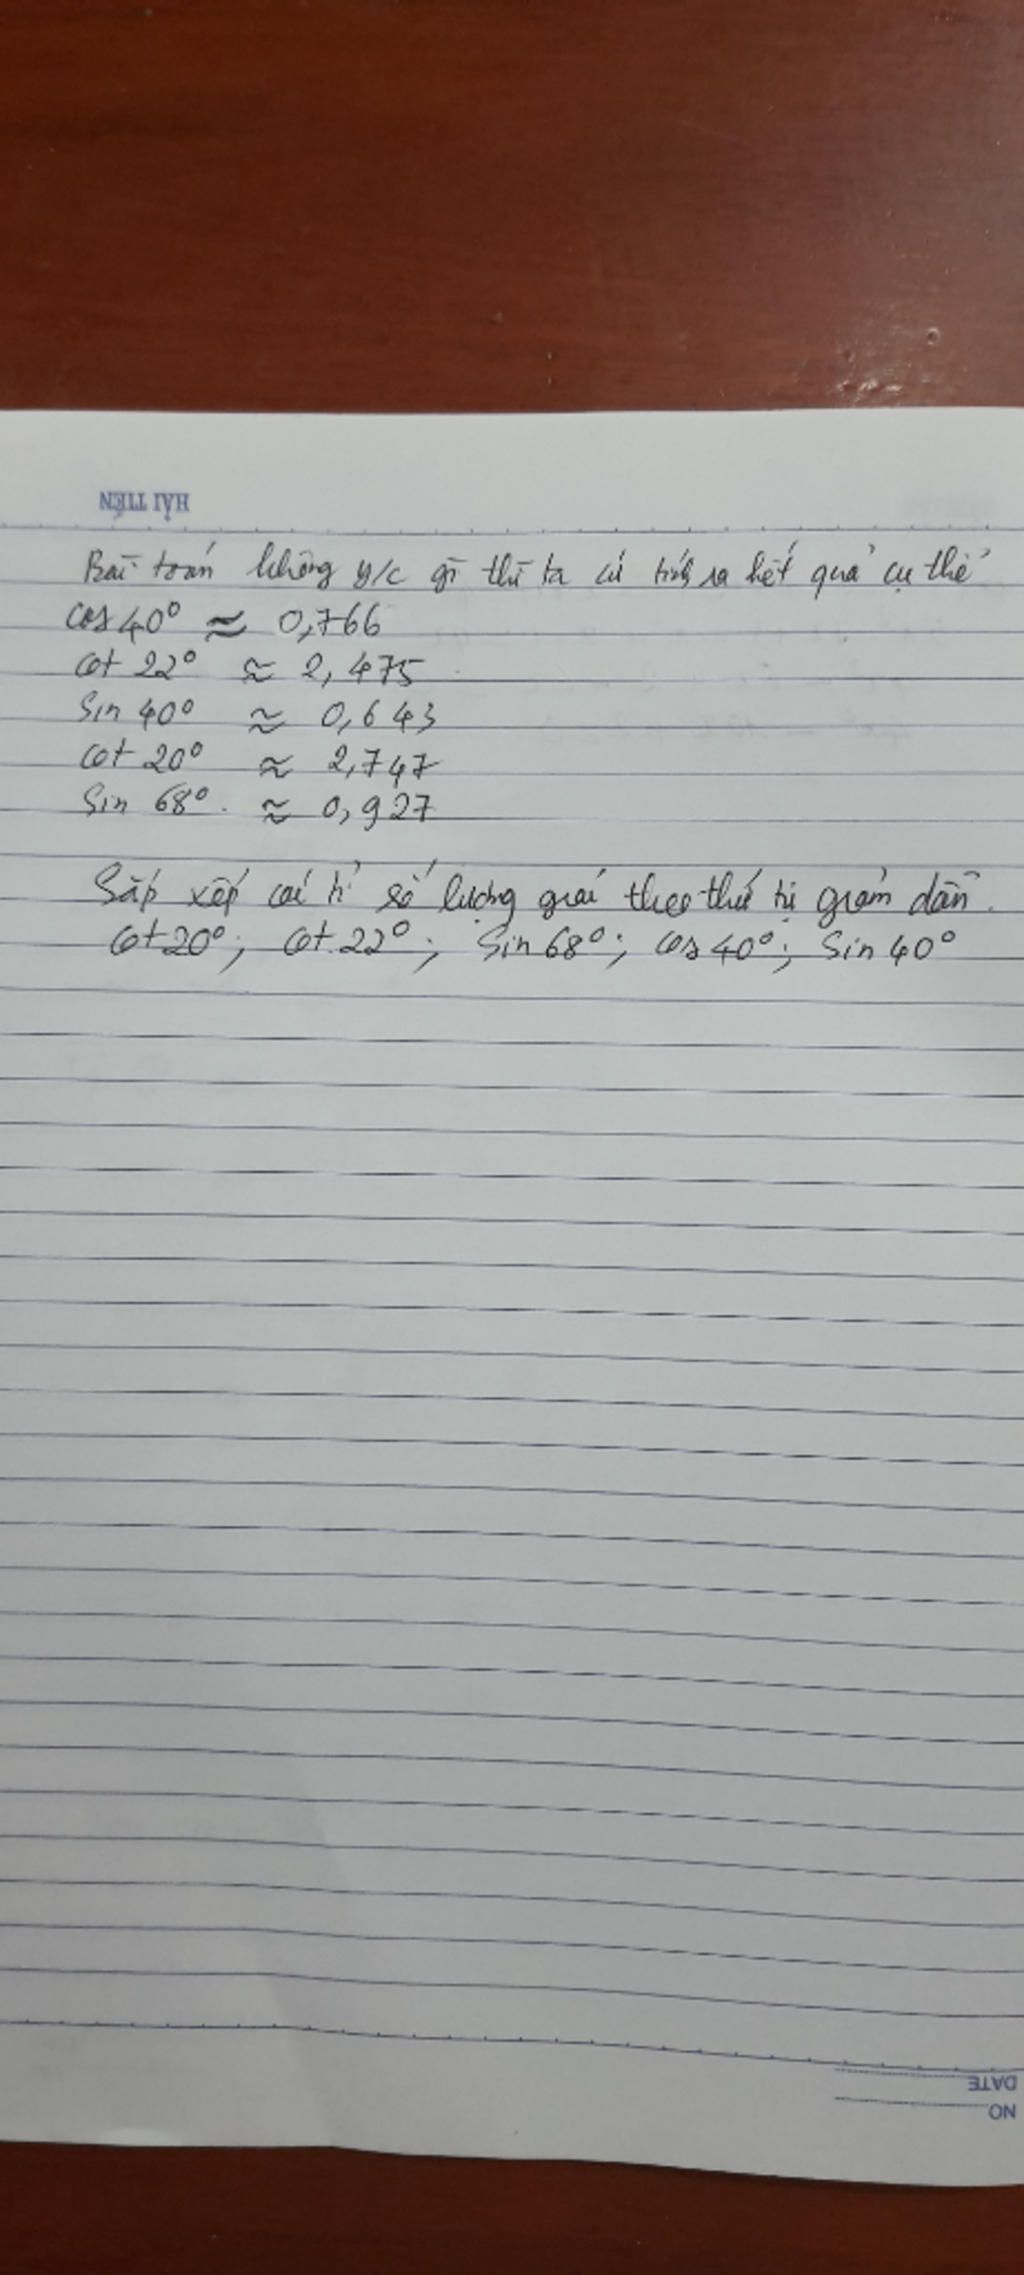 HẢI TIẾN
Bài toán không y/c gì thì ta cứ tính ra kết quả cụ thể
cos 40° ≈ 0,766
cot 22° ≈ 2,475
Sin 40° ≈ 0,643
cot 20° ≈ 2,747
Sin 68° ≈ 0,927
Sắp xếp các tỉ số lượng giác theo thứ tự giảm dần.
cot 20°; cot 22°; Sin 68°; cos 40°; Sin 40°
DATE
NO